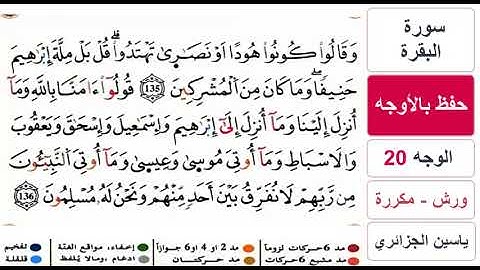 سورة
البقرة
حفظ بالأوجه
الوجه 20
ورش - مكررة
ياسين الجزائري
وَقَالُوا۟ كُونُوا۟ هُودًا اَوْ نَصَٰرَىٰ تَهْتَدُوا۟ۖ قُلْ بَلْ مِلَّةَ إِبْرَٰهِيمَ
حَنِيفًاۖ وَمَا كَانَ مِنَ اَ۬لْمُشْرِكِينَۖ 135 قُولُوٓا۟ ءَامَنَّا بِاللَّهِ وَمَآ
أُنزِلَ إِلَيْنَا وَمَآ أُنزِلَ إِلَىٰٓ إِبْرَٰهِيمَ وَإِسْمَٰعِيلَ وَإِسْحَٰقَ وَيَعْقُوبَ
وَالَاسْبَاطِ وَمَآ أُوتِيَ مُوسَىٰ وَعِيسَىٰ وَمَآ أُوتِيَ اَ۬لنَّبِيٓـُٔونَ
مِن رَّبِّهِمْ لَا نُفَرِّقُ بَيْنَ أَحَدٍ مِّنْهُمْ وَنَحْنُ لَهُۥ مُسْلِمُونَۖ 136
مد 6 حركات لزوماً مد 2 او 4 او 6 جوازاً إخفاء، ومواقع الغنّة تفخيم
مد مشبع 6 حركات مد حركتان ادغام ، ومالا يُلفظ قلقلة